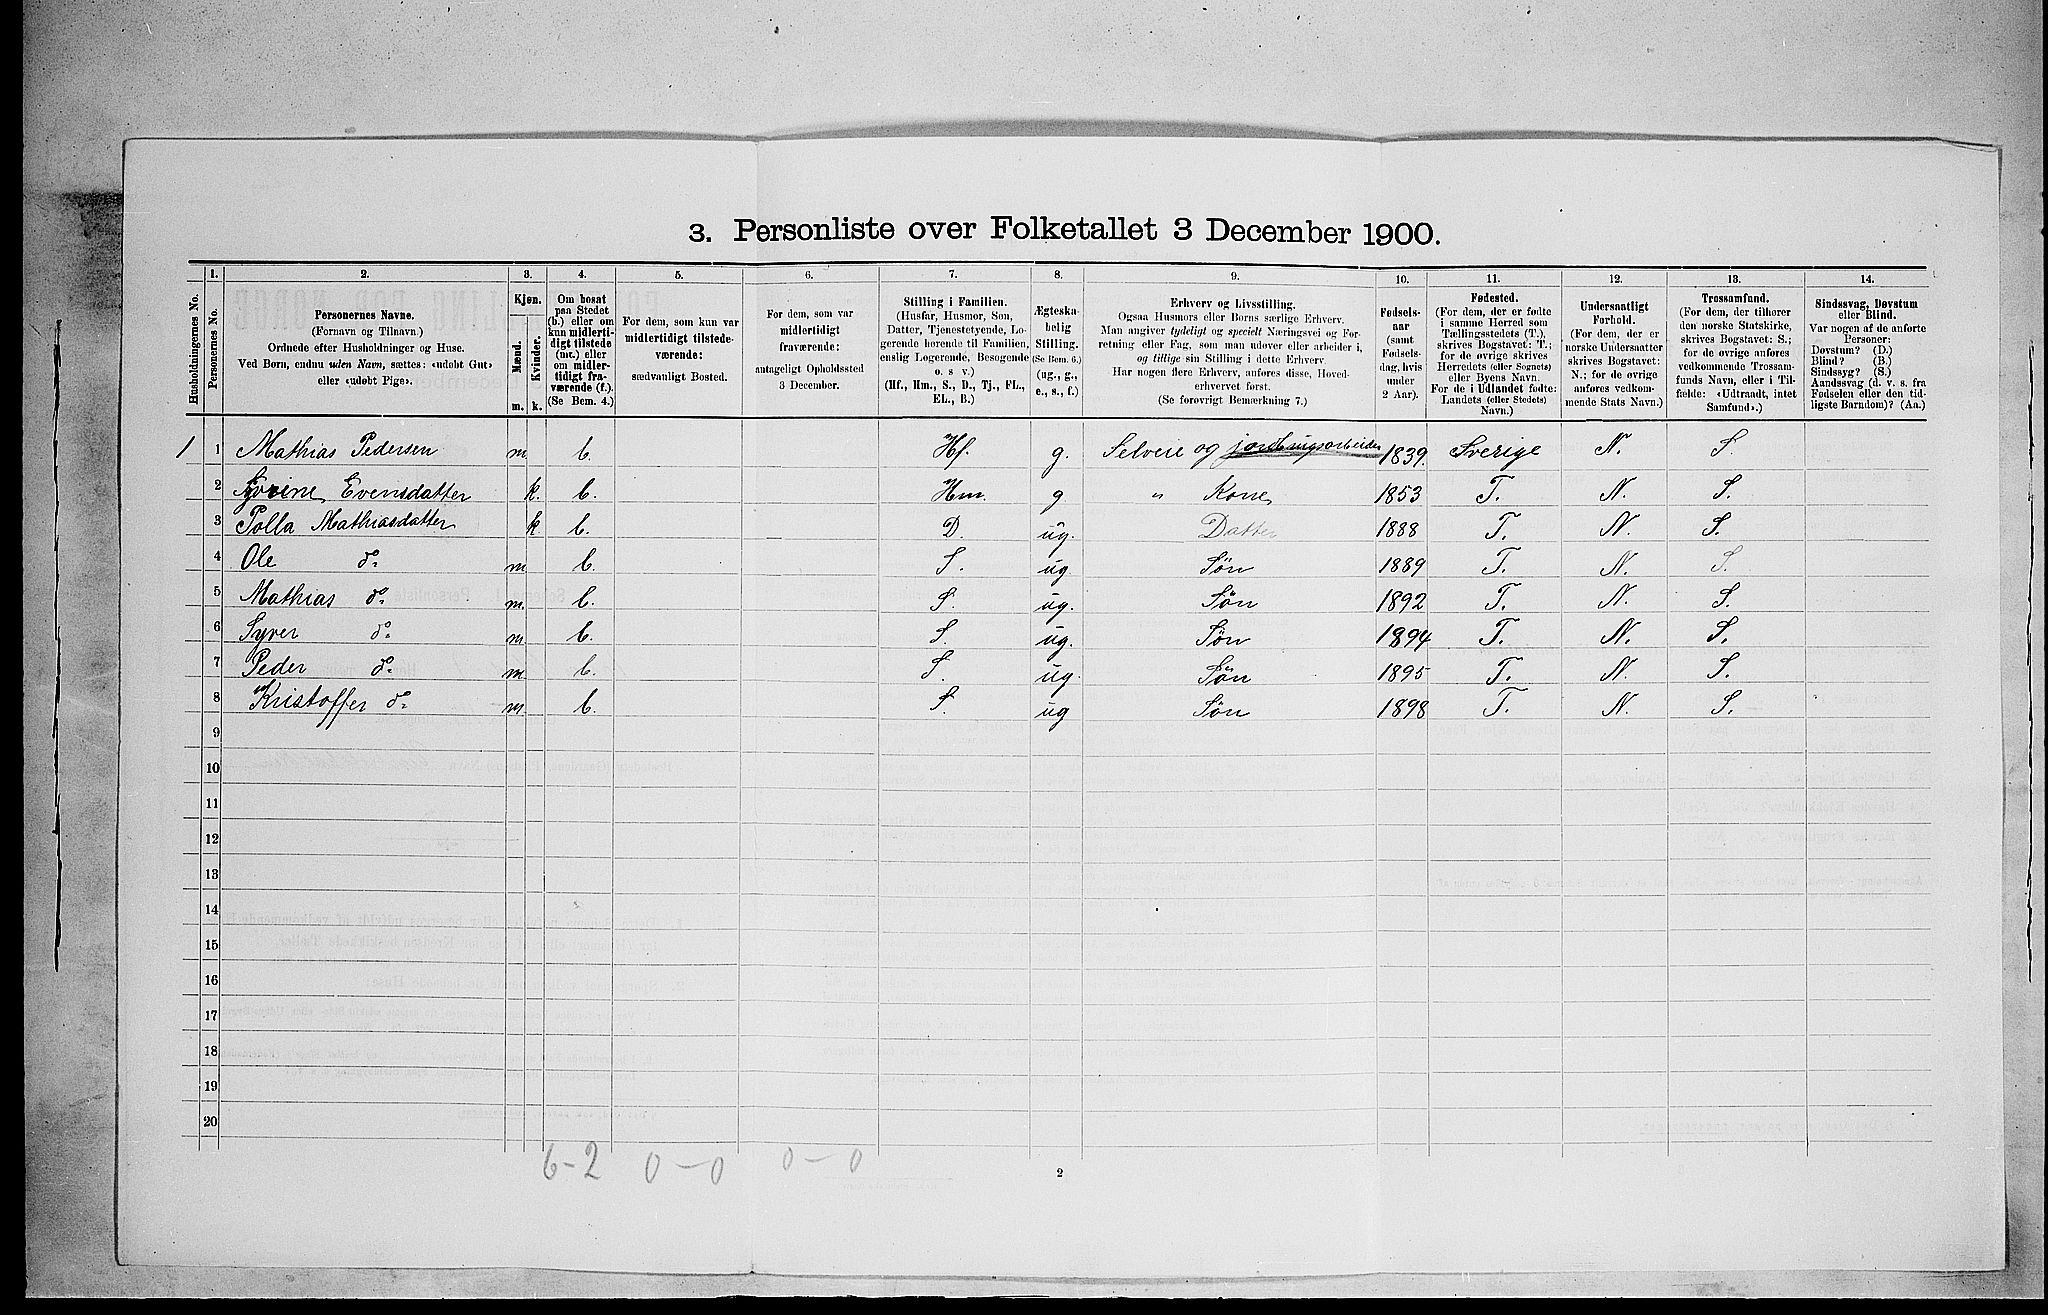 3. Personliste over Folketallet 3 December 1900.
Husholdningernes No.
1.
Personernes No.
2.
Personernes Navne.
(Fornavn og Tilnavn.)
Ordnede efter Husholdninger og Huse.
Ved Børn, endnu uden Navn, sættes: «udøbt Gut»
eller «udøbt Pige».
3.
Kjøn.
Mænd.
Kvinder.
m. k.
4.
Om bosat
paa Stedet
(b.) eller om
kun midlerti-
digt tilstede
(mt.) eller
om midler-
tidigt fra-
værende (f.).
(Se Bem. 4.)
5.
For dem, som kun var
midlertidigt tilstede-
værende:
sædvanligt Bosted.
6.
For dem, som var
midlertidigt
fraværende:
antageligt Opholdssted
3 December.
7.
Stilling i Familien.
(Husfar, Husmor, Søn,
Datter, Tjenestetyende, Lo-
gerende hørende til Familien,
enslig Logerende, Besøgende
o. s. v.)
(Hf., Hm., S., D., Tj., FL.,
EL., B.)
8.
Ægteska-
belig
Stilling.
(Se Bem. 6.)
(ug., g.,
e., s., f.)
9.
Erhverv og Livsstilling.
Ogsaa Husmors eller Børns særlige Erhverv.
Man angiver tydeligt og specielt Næringsvei og For-
retning eller Fag, som man udøver eller arbeider i,
og tillige sin Stilling i dette Erhverv.
Har nogen flere Erhverv, anføres disse, Hoved-
erhvervet først.
(Se forøvrigt Bemærkning 7.)
10.
Fødsels-
aar
(samt
Fødsels-
dag, hvis
under
2 Aar).
11.
Fødested.
(For dem, der er fødte
i samme Herred som
Tællingsstedets (T.),
skrives Bogstavet: T.;
for de øvrige skrives
Herredets (eller Sognets)
eller Byens Navn.
For de i Udlandet fødte:
Landets (eller Stedets)
Navn.)
12.
Undersaatligt
Forhold.
(For dem, der er
norske Undersaatter
skrives Bogstavet:
N.; for de øvrige
anføres vedkom-
mende Stats Navn.)
13.
Trossamfund.
(For dem, der tilhører
den norske Statskirke,
skrives Bogstavet: S.;
for de øvrige anføres
vedkommende Trossam-
funds Navn, eller i Til-
fælde: «Udtraadt, intet
Samfund».)
14.
Sindssvag, Døvstum
eller Blind.
Var nogen af de anførte
Personer:
Døvstum? (D.)
Blind? (B.)
Sindssyg? (S.)
Aandssvag (d. v. s. fra
Fødselen eller den tid-
ligste Barndom)? (Aa.)
1 1 Mathias Pedersen m. b. Hf. g. Selveie og jordbrugsarbeider 1839. Sverige N. S.
2 Evensdatter k. b. Hm. g. " Kone 1853 T. N. S.
3 Polla Mathiasdatter k. b. D. ug. Datter 1888 T. N. S.
4 Ole do m. b. S. ug. Søn 1889 T. N. S.
5 Mathias do m. b. S. ug. Søn 1892 T. N. S.
6 Syver do m. b. S. ug. Søn 1894 T. N. S.
7 Peder do m. b. S. ug. Søn 1895 T. N. S.
8 Kristoffer do m. b. S. ug Søn 1898 T. N. S.
9
10
11
12
13
14
15
16
17
18
19
20
6-2 0-0 0-0
2